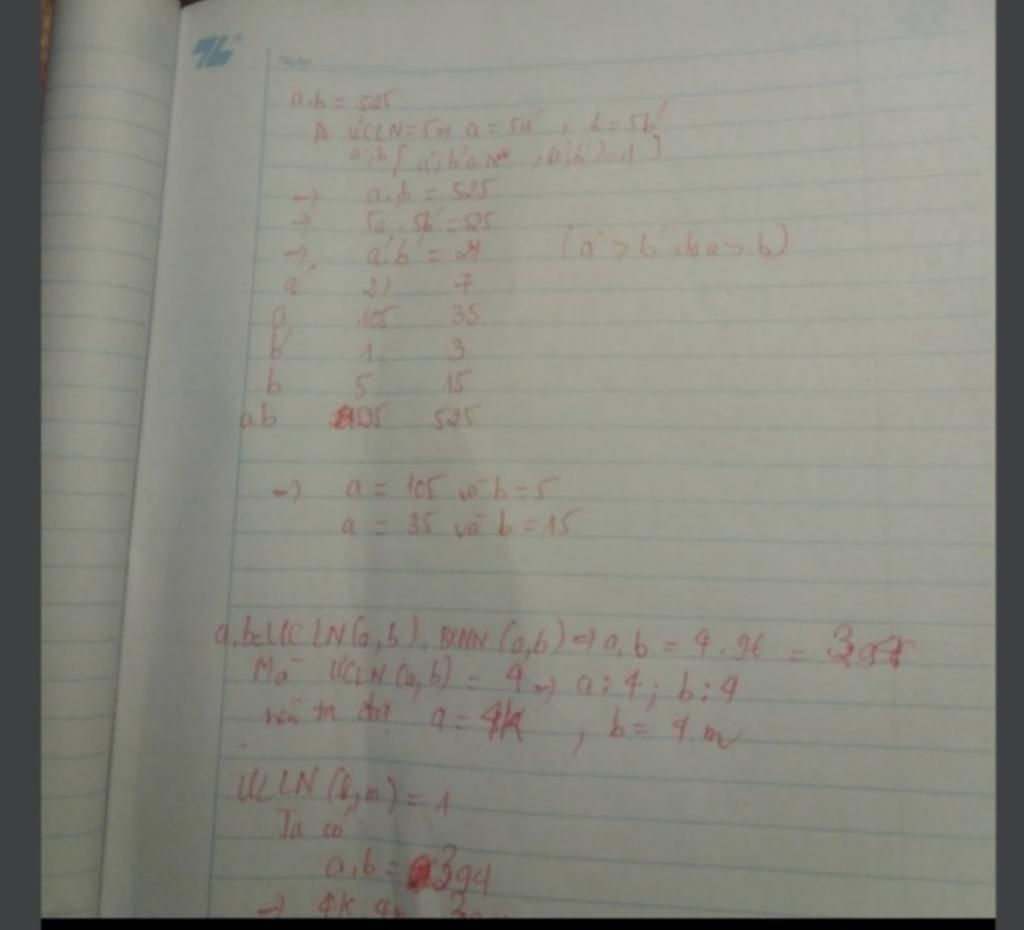 Ngày
a.b = 525
ƯCLN = 5 a = 5a' , b = 5b'
[ a', b' , (a', b') = 1 ]
→ a.b = 525
→ 5a'. 5b' = 525
→ a'.b' = 21 ( a' > b' do a > b )
a' 21 7
a 105 35
b' 1 3
b 5 15
ab 525 525
→ a = 105 và b = 5
a = 35 và b = 15
a.b = ƯCLN (a,b) . BCNN (a,b) ⇒ a.b = 4.96 =
Mà ƯCLN (a,b) = 4 → a ⋮ 4 ; b ⋮ 4
nên ta đặt a = 4k , b = 4m
ƯCLN (k,m) = 1
Ta có
a.b = 394
→ 4k